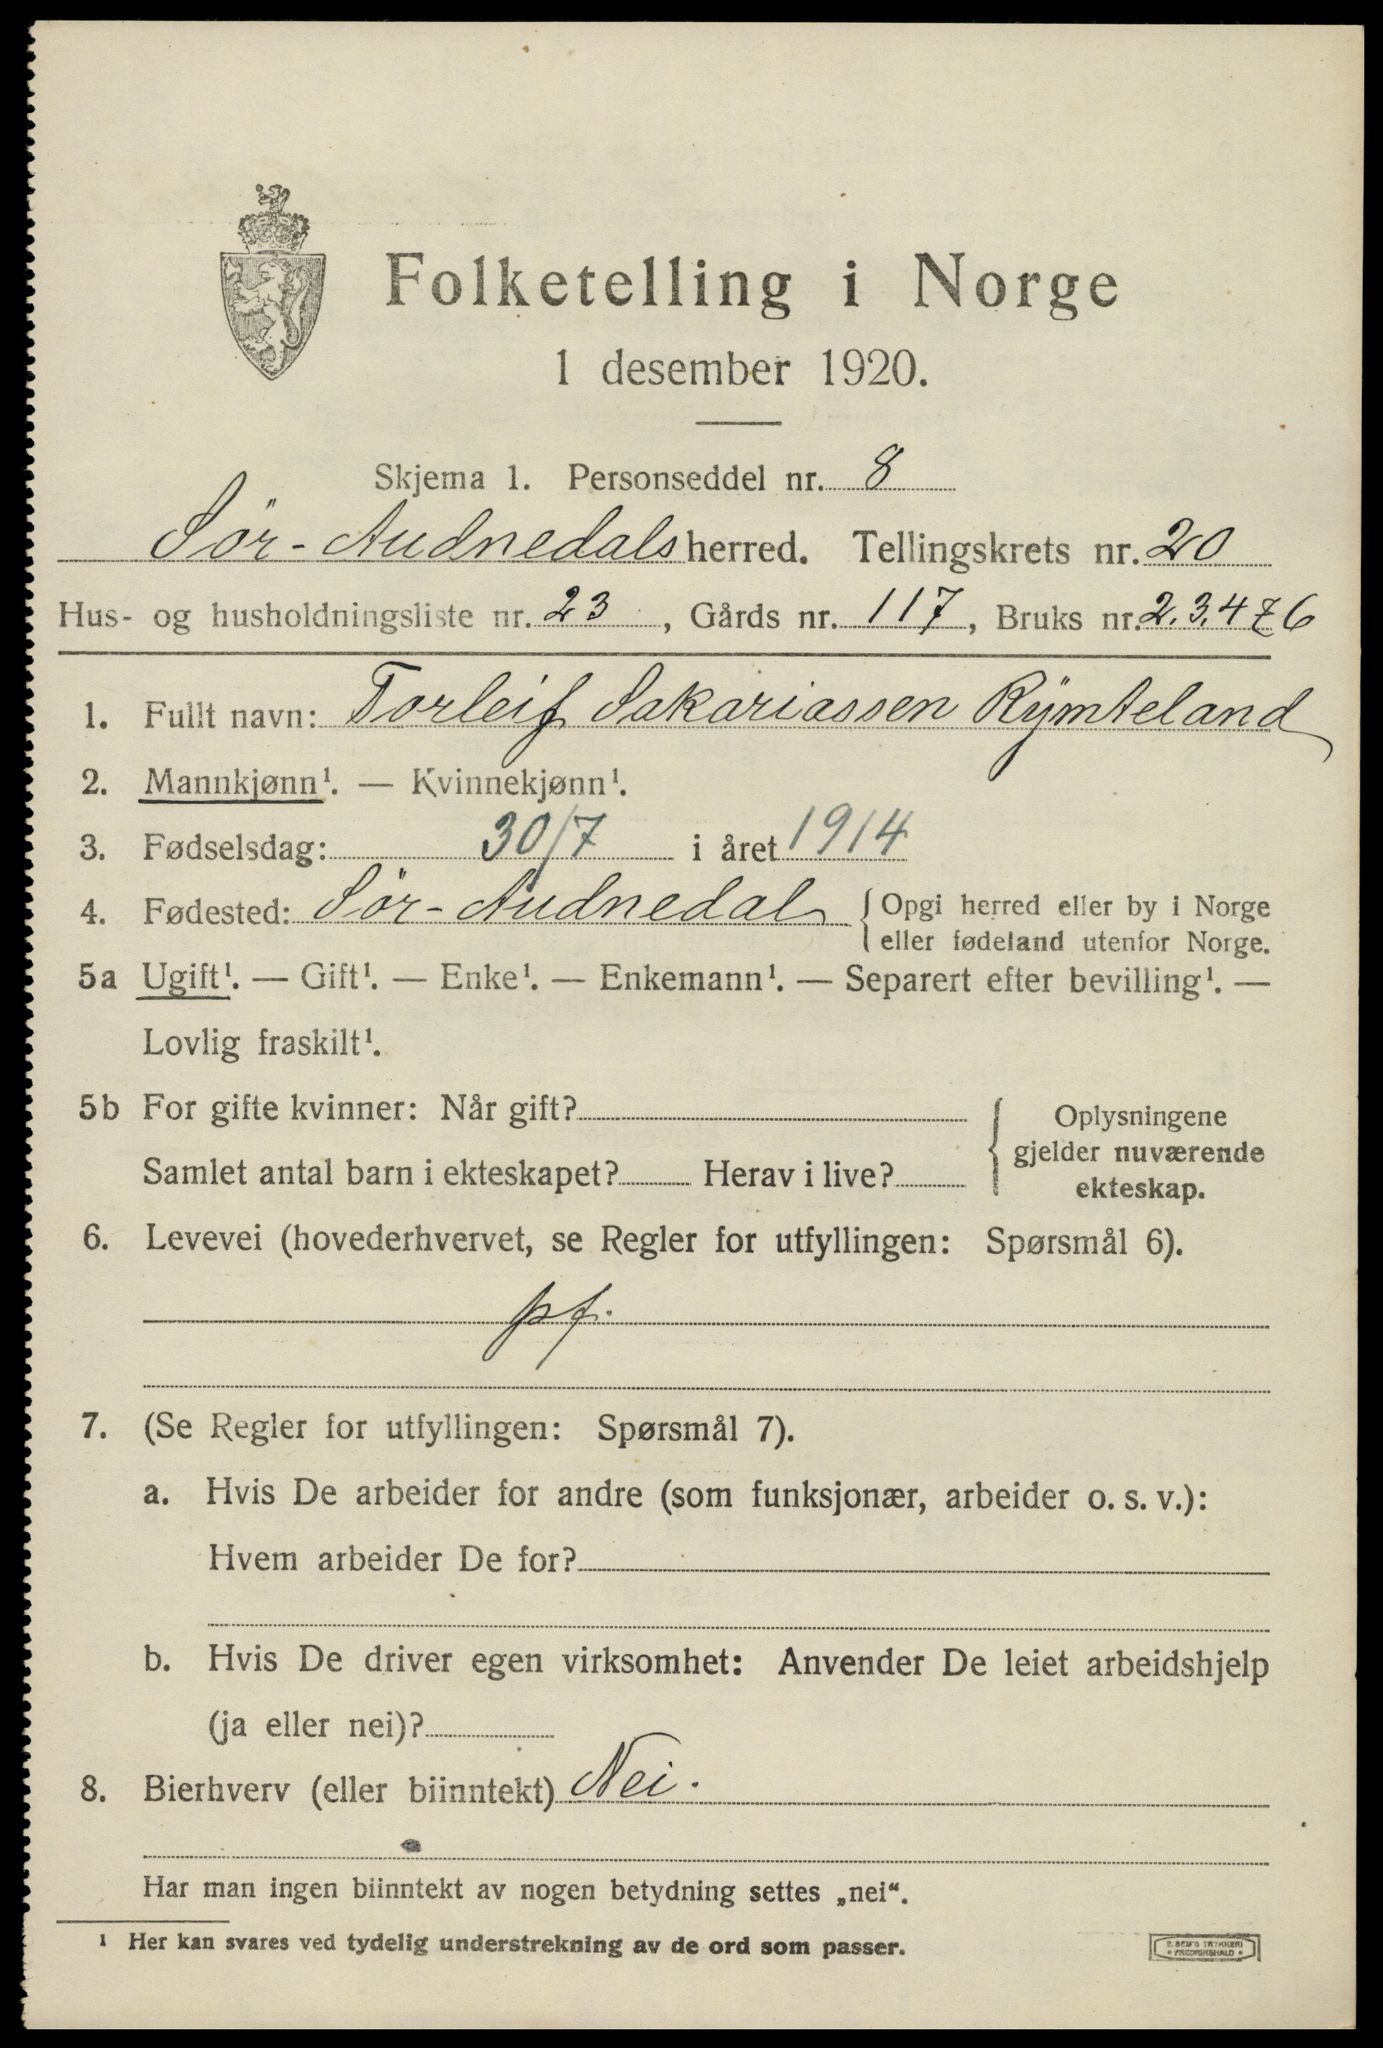 Folketelling i Norge
1 desember 1920.
Skjema 1. Personseddel nr. 8
Sör-Audnedals herred. Tellingskrets nr. 20
Hus- og husholdningsliste nr. 23, Gårds nr. 117, Bruks nr. 2.3.4 & 6
1. Fullt navn: Torleif Sakariassen Rymteland
2. Mannkjønn¹. — Kvinnekjønn¹.
3. Fødselsdag: 30/7 i året 1914
4. Fødested: Sör-Audnedal { Opgi herred eller by i Norge
eller fødeland utenfor Norge.
5a Ugift¹. — Gift¹. — Enke¹. — Enkemann¹. — Separert efter bevilling¹. —
Lovlig fraskilt¹.
5b For gifte kvinner: Når gift?
Samlet antal barn i ekteskapet? Herav i live?
{ Oplysningene
gjelder nuværende
ekteskap.
6. Levevei (hovederhvervet, se Regler for utfyllingen: Spørsmål 6).
pf.
7. (Se Regler for utfyllingen: Spørsmål 7).
a. Hvis De arbeider for andre (som funksjonær, arbeider o. s. v.):
Hvem arbeider De for?
b. Hvis De driver egen virksomhet: Anvender De leiet arbeidshjelp
(ja eller nei)?
8. Bierhverv (eller biinntekt) Nei.
Har man ingen biinntekt av nogen betydning settes „nei“.
¹ Her kan svares ved tydelig understrekning av de ord som passer.
E. SEM'S TRYKKERI
FREDRIKSHALD